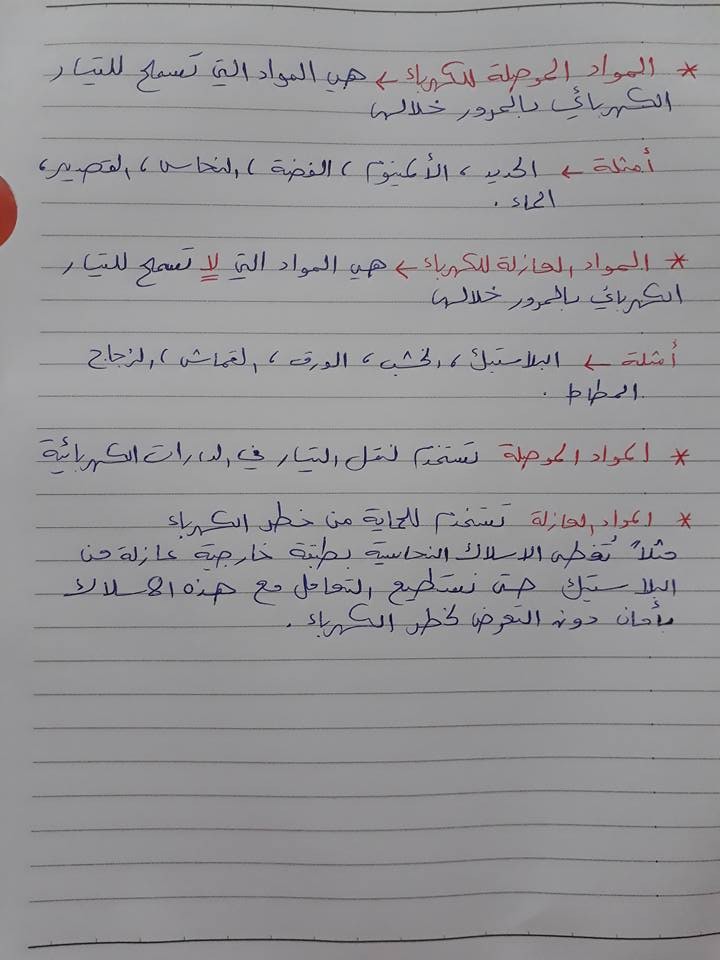 * المواد الموصلة للكهرباء ← هي المواد التي تسمح للتيار
الكهربائي بالمرور خلالها
أمثلة ← الحديد ، الألمنيوم ، الفضة ، النحاس ، القصدير ،
الماء .
* المواد العازلة للكهرباء ← هي المواد التي لا تسمح للتيار
الكهربائي بالمرور خلالها
أمثلة ← البلاستيك ، الخشب ، الورق ، القماش ، الزجاج
المطاط .
* المواد الموصلة تستخدم لنقل التيار في الدارات الكهربائية
* المواد العازلة تستخدم للحماية من خطر الكهرباء
مثلاً تُغطى الاسلاك النحاسية بطبقة خارجية عازلة من
البلاستيك حتى نستطيع التعامل مع هذه الاسلاك
بأمان دون التعرض لخطر الكهرباء .